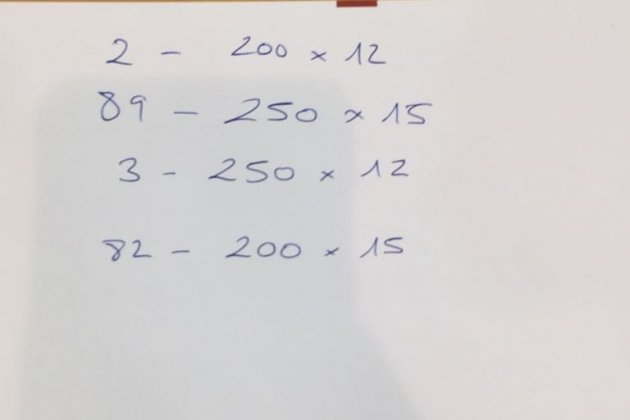 2 - 200 x 12
89 - 250 x 15
3 - 250 x 12
82 - 200 x 15